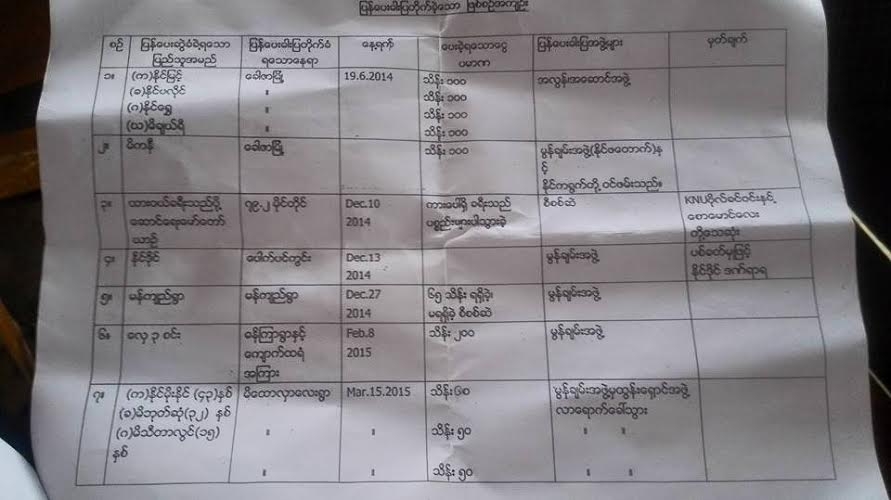 ပြန်ပေးခါးပြတိုက်ခဲ့သော ဖြစ်စဉ်အကျဉ်း
စဉ် ပြန်ပေးဆွဲခံရသော ပြန်ပေးခါးပြတိုက်ခံ နေ့ရက် ပေးခဲ့ရသောငွေ ပြန်ပေးခါးပြအဖွဲ့များ မှတ်ချက်
ပြည်သူအမည် ရသောနေရာ ပမာဏ
၁။ (က)နိုင်မြင့် ခေါဇာမြို့ 19.6.2014 သိန်း ၁၀၀ အလွန်းအဆောင်အဖွဲ့
(ခ)နိုင်ပလိုင် " သိန်း ၁၀၀
(ဂ)နိုင်ရွှေ " သိန်း ၁၀၀
(ဃ)မိချယ်ရီ " သိန်း ၁၀၀
၂။ မိကနီ ခေါဇာမြို့ သိန်း ၁၀၀ မွန်ချမ်းအဖွဲ့(နိုင်ဗတောက်)နှ
င့်
နိုင်ကရွက်တို့ ဝင်ဖမ်းသည်။
၃။ ထားဝယ်ခရီးသည်ပို့ ၇၉.၂ မိုင်တိုင် Dec.10 ကားပေါ်ရှိ ခရီးသည် စီစစ်ဆဲ KNUဗိုလ်ခင်ဝင်းနှင့်
ဆောင်ရေးမော်တော် 2014 ပစ္စည်းများပါသွားခဲ့ စောမောင်လေး
ယာဉ် တို့သေဆုံး
၄။ နိုင်ဒိုင် ပေါက်ပင်ကွင်း Dec.13 မွန်ချမ်းအဖွဲ့ ပစ်ခတ်မှုဖြင့်
2014 နိုင်ဒိုင် ဒဏ်ရာရ
၅။ မန်ကျည်ရွာ မန်ကျည်ရွာ Dec.27 ၆၅ သိန်း ရရှိခဲ့၊ မွန်ချမ်းအဖွဲ့
2014 မရရှိခဲ့ စီစစ်ဆဲ
၆။ လှေ ၃ စင်း ခန်ကြာရွာနှင့် Feb.8 သိန်း ၂၀၀ မွန်ချမ်းအဖွဲ့
ကျောက်ထရံ 2015
အကြား
၇။ (က)နိုင်မိုးနိုင် (၄၃)နှစ် မိထောလှာလေးရွာ Mar.15.2015 သိန်း၆၀ မွန်ချမ်းအဖွဲ့မှထွန်းရှောင်အဖွဲ့
(ခ)မိဘုတ်ဆုံ(၃၂) နှစ် လာရောက်ခေါ်သွား
(ဂ)မိသီတာလွင်(၁၅) " " သိန်း ၅၀ " "
နှစ်
" " သိန်း ၅၀ " "